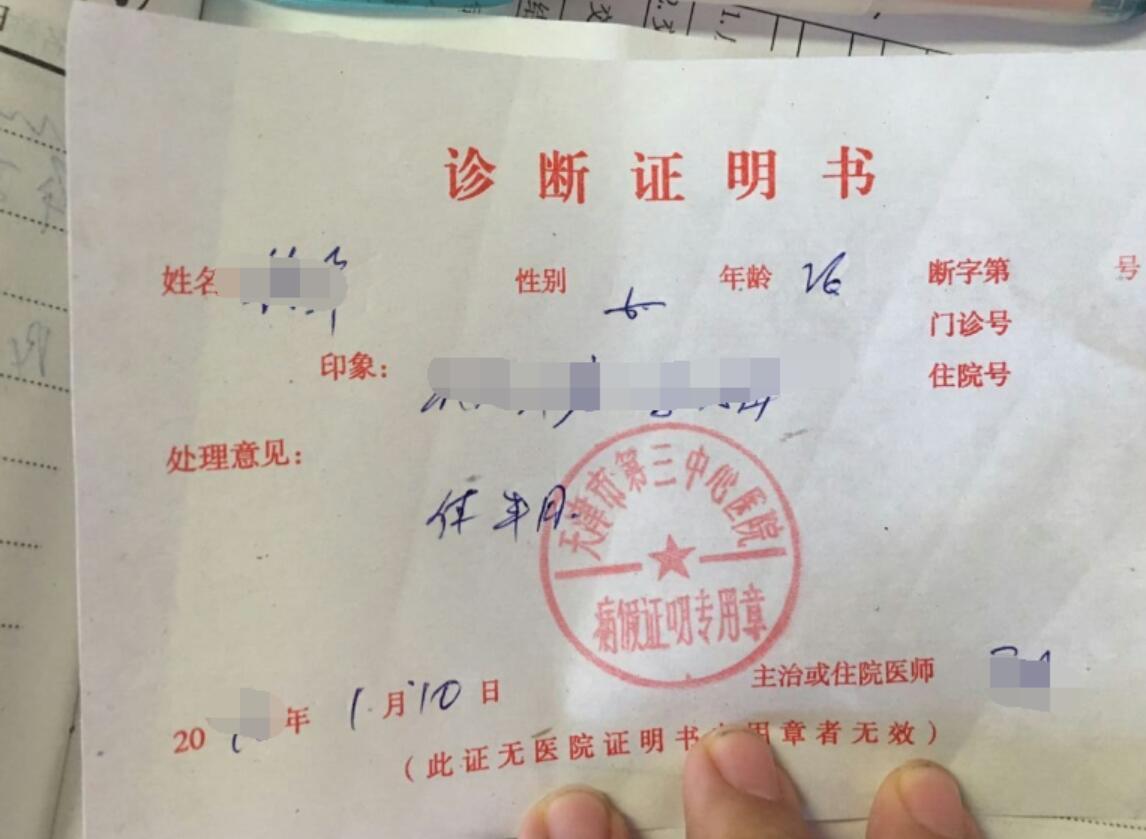 诊断证明书
姓名 性别 女 年龄 26 断字第 号
门诊号
印象： 住院号
处理意见：
休半月.
天津市第三中心医院
病假证明专用章
主治或住院医师
20 年 1月10日
（此证无医院证明书 用章者无效）